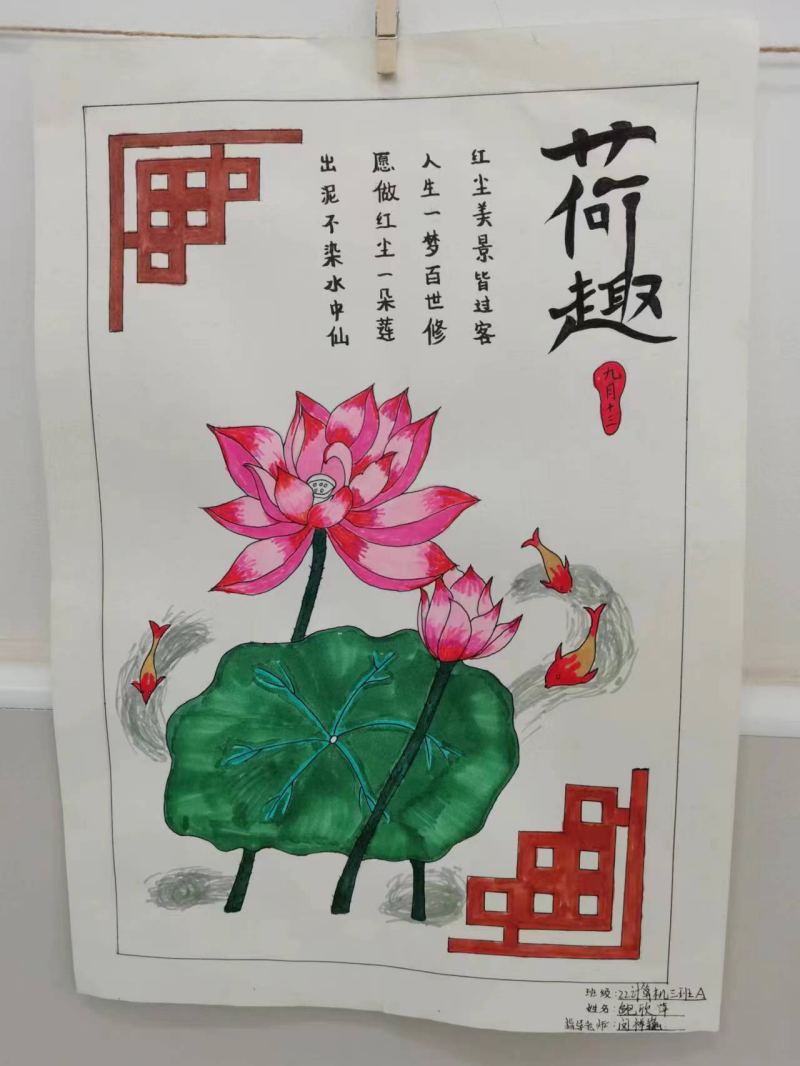 荷趣
九月十三
红尘美景皆过客
人生一梦百世修
愿做红尘一朵莲
出泥不染水中仙
班级:22计算机三班A
姓名:鲍欣萍
指导老师:闵